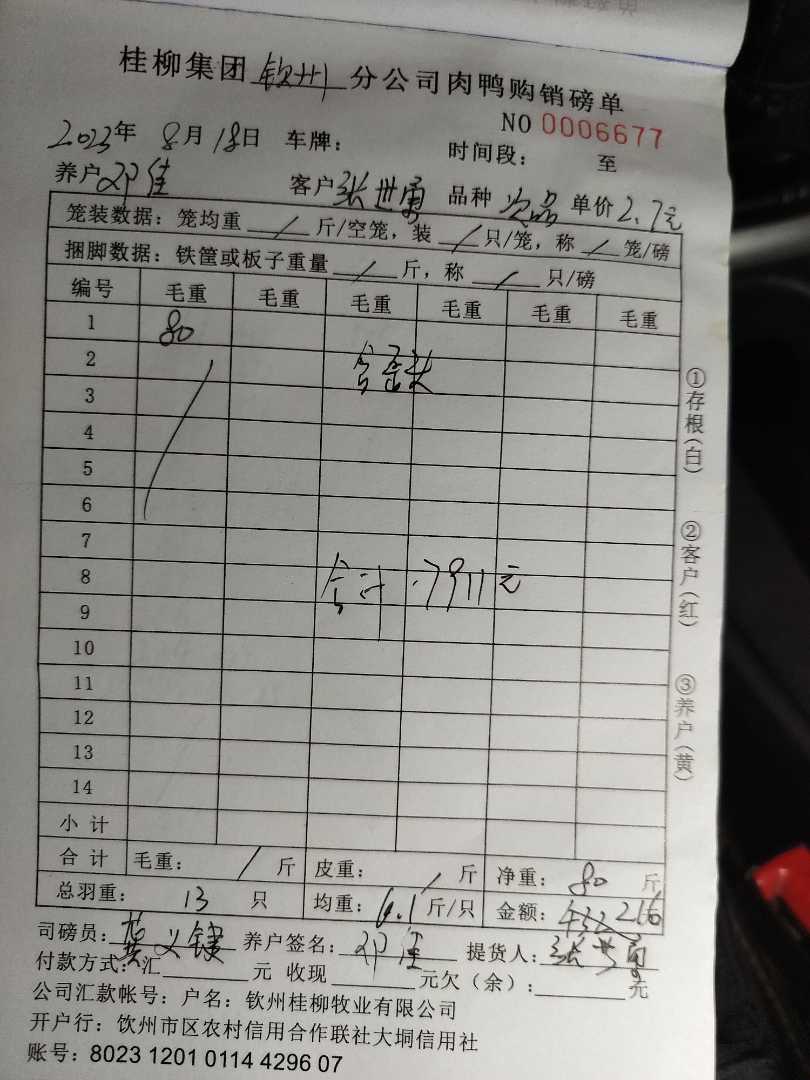 桂柳集团 钦州 分公司肉鸭购销磅单
NO 0006677
2023年 8月18日 车牌： 时间段： 至
养户 邓佳 客户 张世勇 品种 次品 单价 2.7元
笼装数据：笼均重 / 斤/空笼，装 / 只/笼，称 / 笼/磅
捆脚数据：铁筐或板子重量 / 斤，称 / 只/磅
编号 毛重 毛重 毛重 毛重 毛重 毛重
1 80
2
3
4
5
6
7
8 合计：7911元
9
10
11
12
13
14
小计
合计 毛重： / 斤 皮重： / 斤 净重： 80 斤
总羽重： 13 只 均重： 6.1 斤/只 金额： 432 216
司磅员： 养户签名： 邓佳 提货人： 张世勇
付款方式：汇 元 收现 元欠（余）： 元
公司汇款帐号：户名：钦州桂柳牧业有限公司
开户行：饮州市区农村信用合作联社大垌信用社
账号：8023 1201 0114 4296 07
①存根（白）
②客户（红）
③养户（黄）